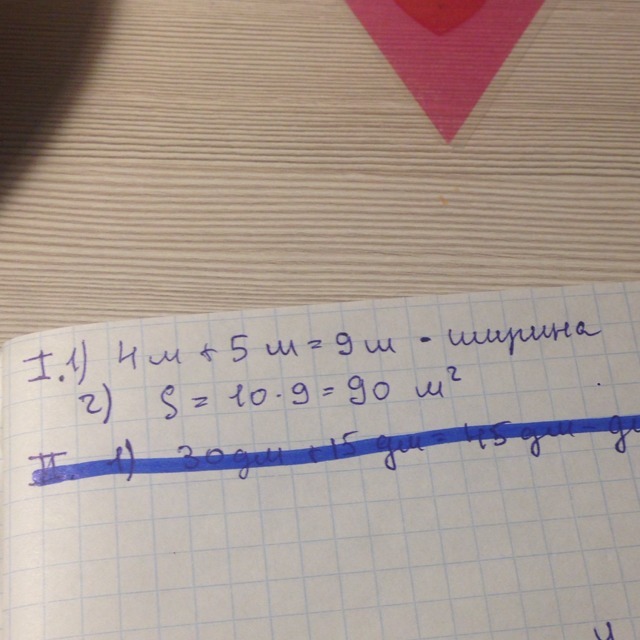 I. 1) 4 м + 5 м = 9 м - ширина
2) S = 10 · 9 = 90 м²
II. 1) 30 дм + 15 дм = 45 дм -